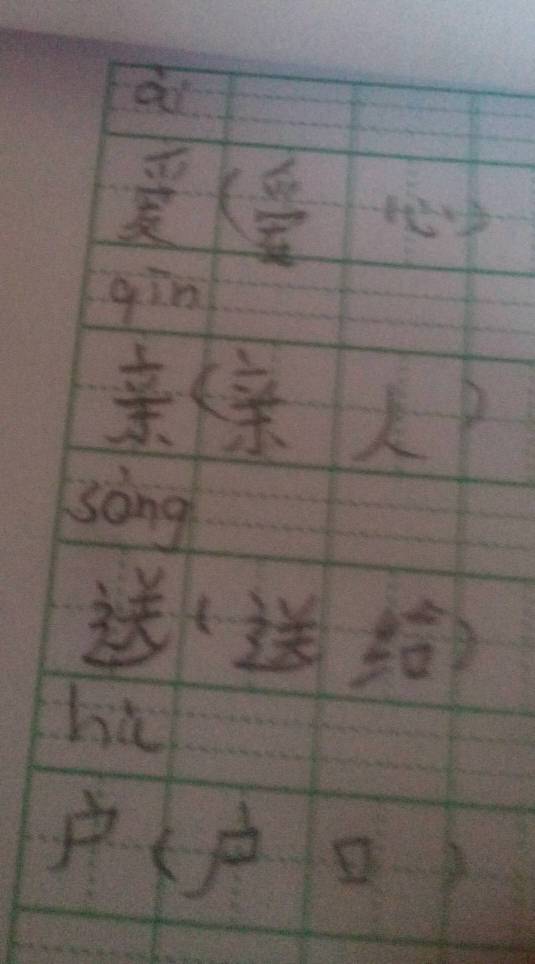 ài
爱(爱心)
qīn
亲(亲人)
sòng
送(送给)
hù
户(户口)